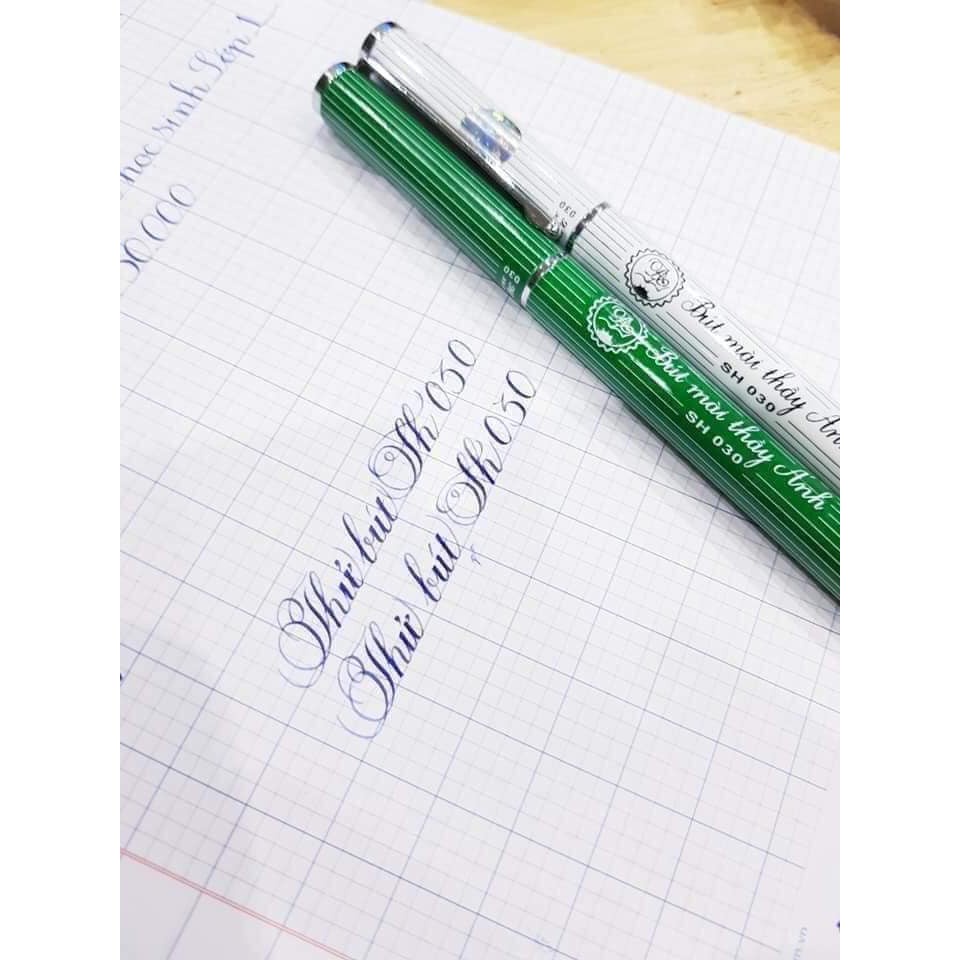 học sinh Lớp 1
50.000
Thử bút Sh 030
Thử bút Sh 030
030
Bút mài thầy Ánh
SH 030
SH 030
Bút mài thầy Ánh
SH 030